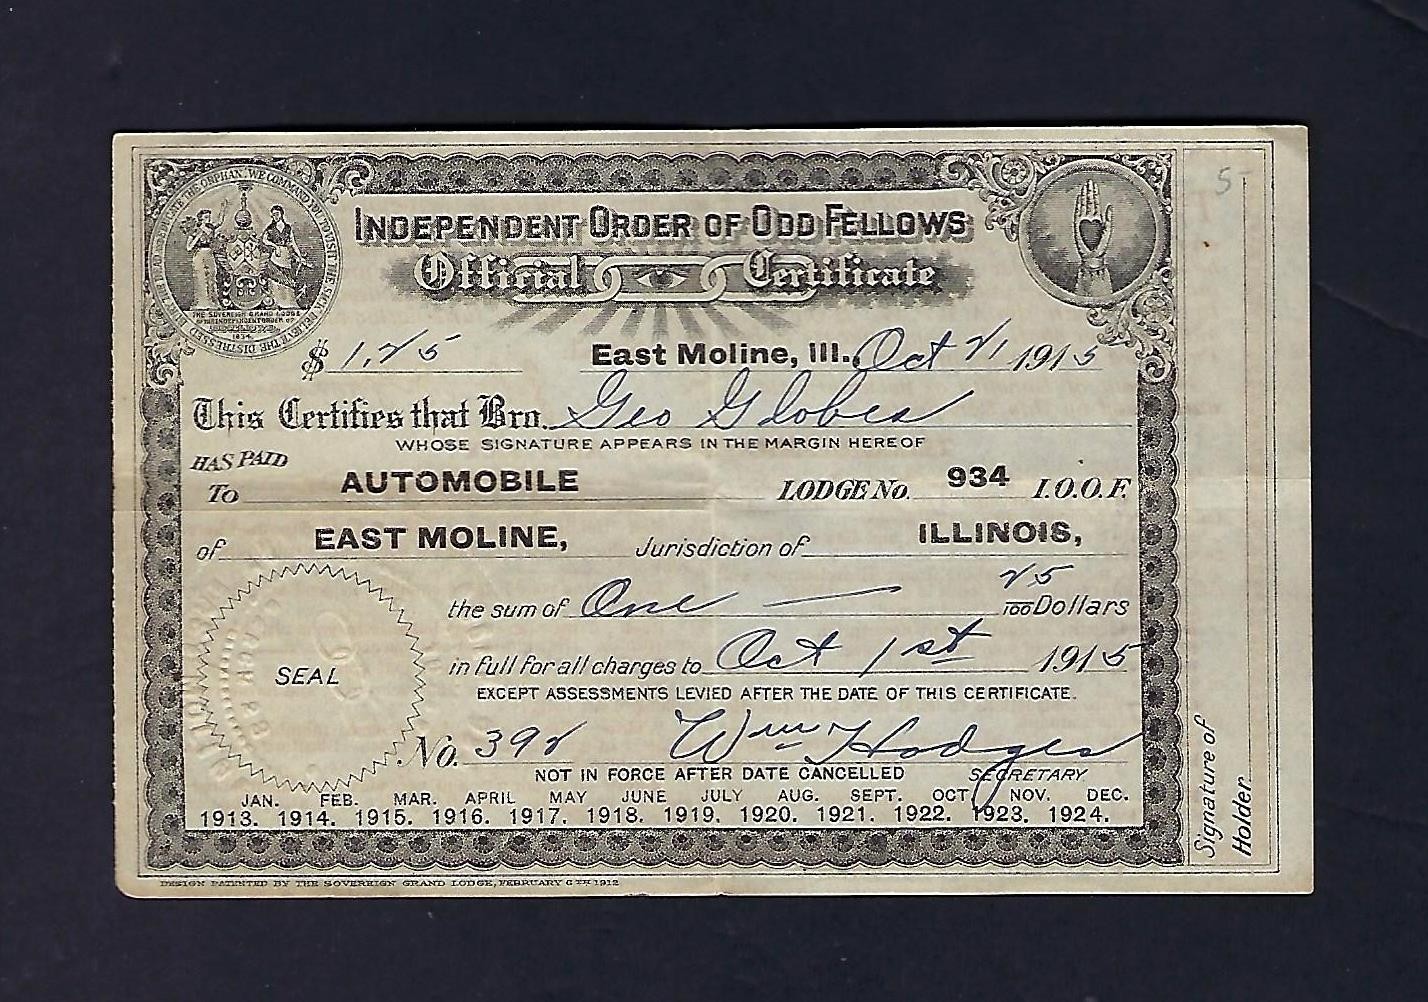 5-
INDEPENDENT ORDER OF ODD FELLOWS
Official Certificate
WE COMMAND YOU TO VISIT THE SICK, RELIEVE THE DISTRESSED, BURY THE DEAD AND EDUCATE THE ORPHAN.
THE SOVEREIGN GRAND LODGE
OF THE INDEPENDENT ORDER OF
ODD FELLOWS
1834
$ 1.25 East Moline, Ill., Oct 21 1915
This Certifies that Bro. Geo Globes
WHOSE SIGNATURE APPEARS IN THE MARGIN HEREOF
HAS PAID
To AUTOMOBILE LODGE No. 934 I.O.O.F.
of EAST MOLINE, Jurisdiction of ILLINOIS,
the sum of One — 25/100 Dollars
in full for all charges to Oct 1st 1915
EXCEPT ASSESSMENTS LEVIED AFTER THE DATE OF THIS CERTIFICATE.
SEAL
No. 392 Wm Hodges
NOT IN FORCE AFTER DATE CANCELLED SECRETARY
JAN. FEB. MAR. APRIL MAY JUNE JULY AUG. SEPT. OCT. NOV. DEC.
1913. 1914. 1915. 1916. 1917. 1918. 1919. 1920. 1921. 1922. 1923. 1924.
DESIGN PATENTED BY THE SOVEREIGN GRAND LODGE, FEBRUARY 6TH 1912
Signature of
Holder